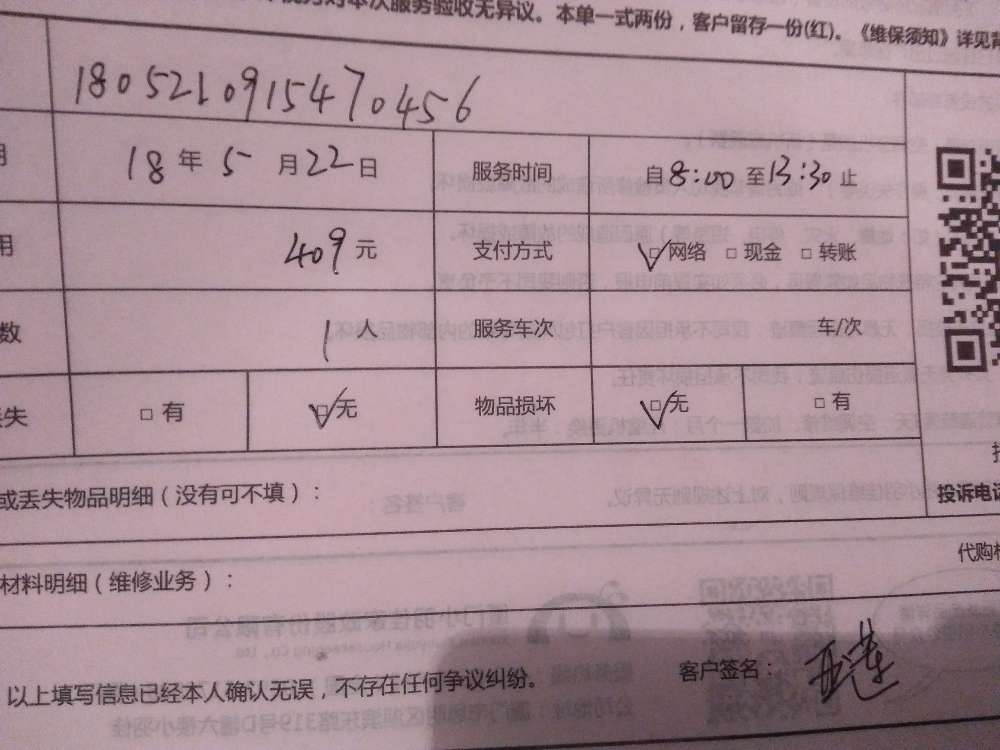 对本次服务验收无异议。本单一式两份，客户留存一份(红)。《维保须知》详见背
180521091547 0456
18 年 5 月 22 日 服务时间 自 8:00 至 13:30 止
用 409 元 支付方式 □网络 □现金 □转账
数 1 人 服务车次 车/次
丢失 □有 □无 物品损坏 □无 □有
或丢失物品明细（没有可不填）：
投诉电话
代购材
材料明细（维修业务）：
以上填写信息已经本人确认无误，不存在任何争议纠纷。 客户签名：